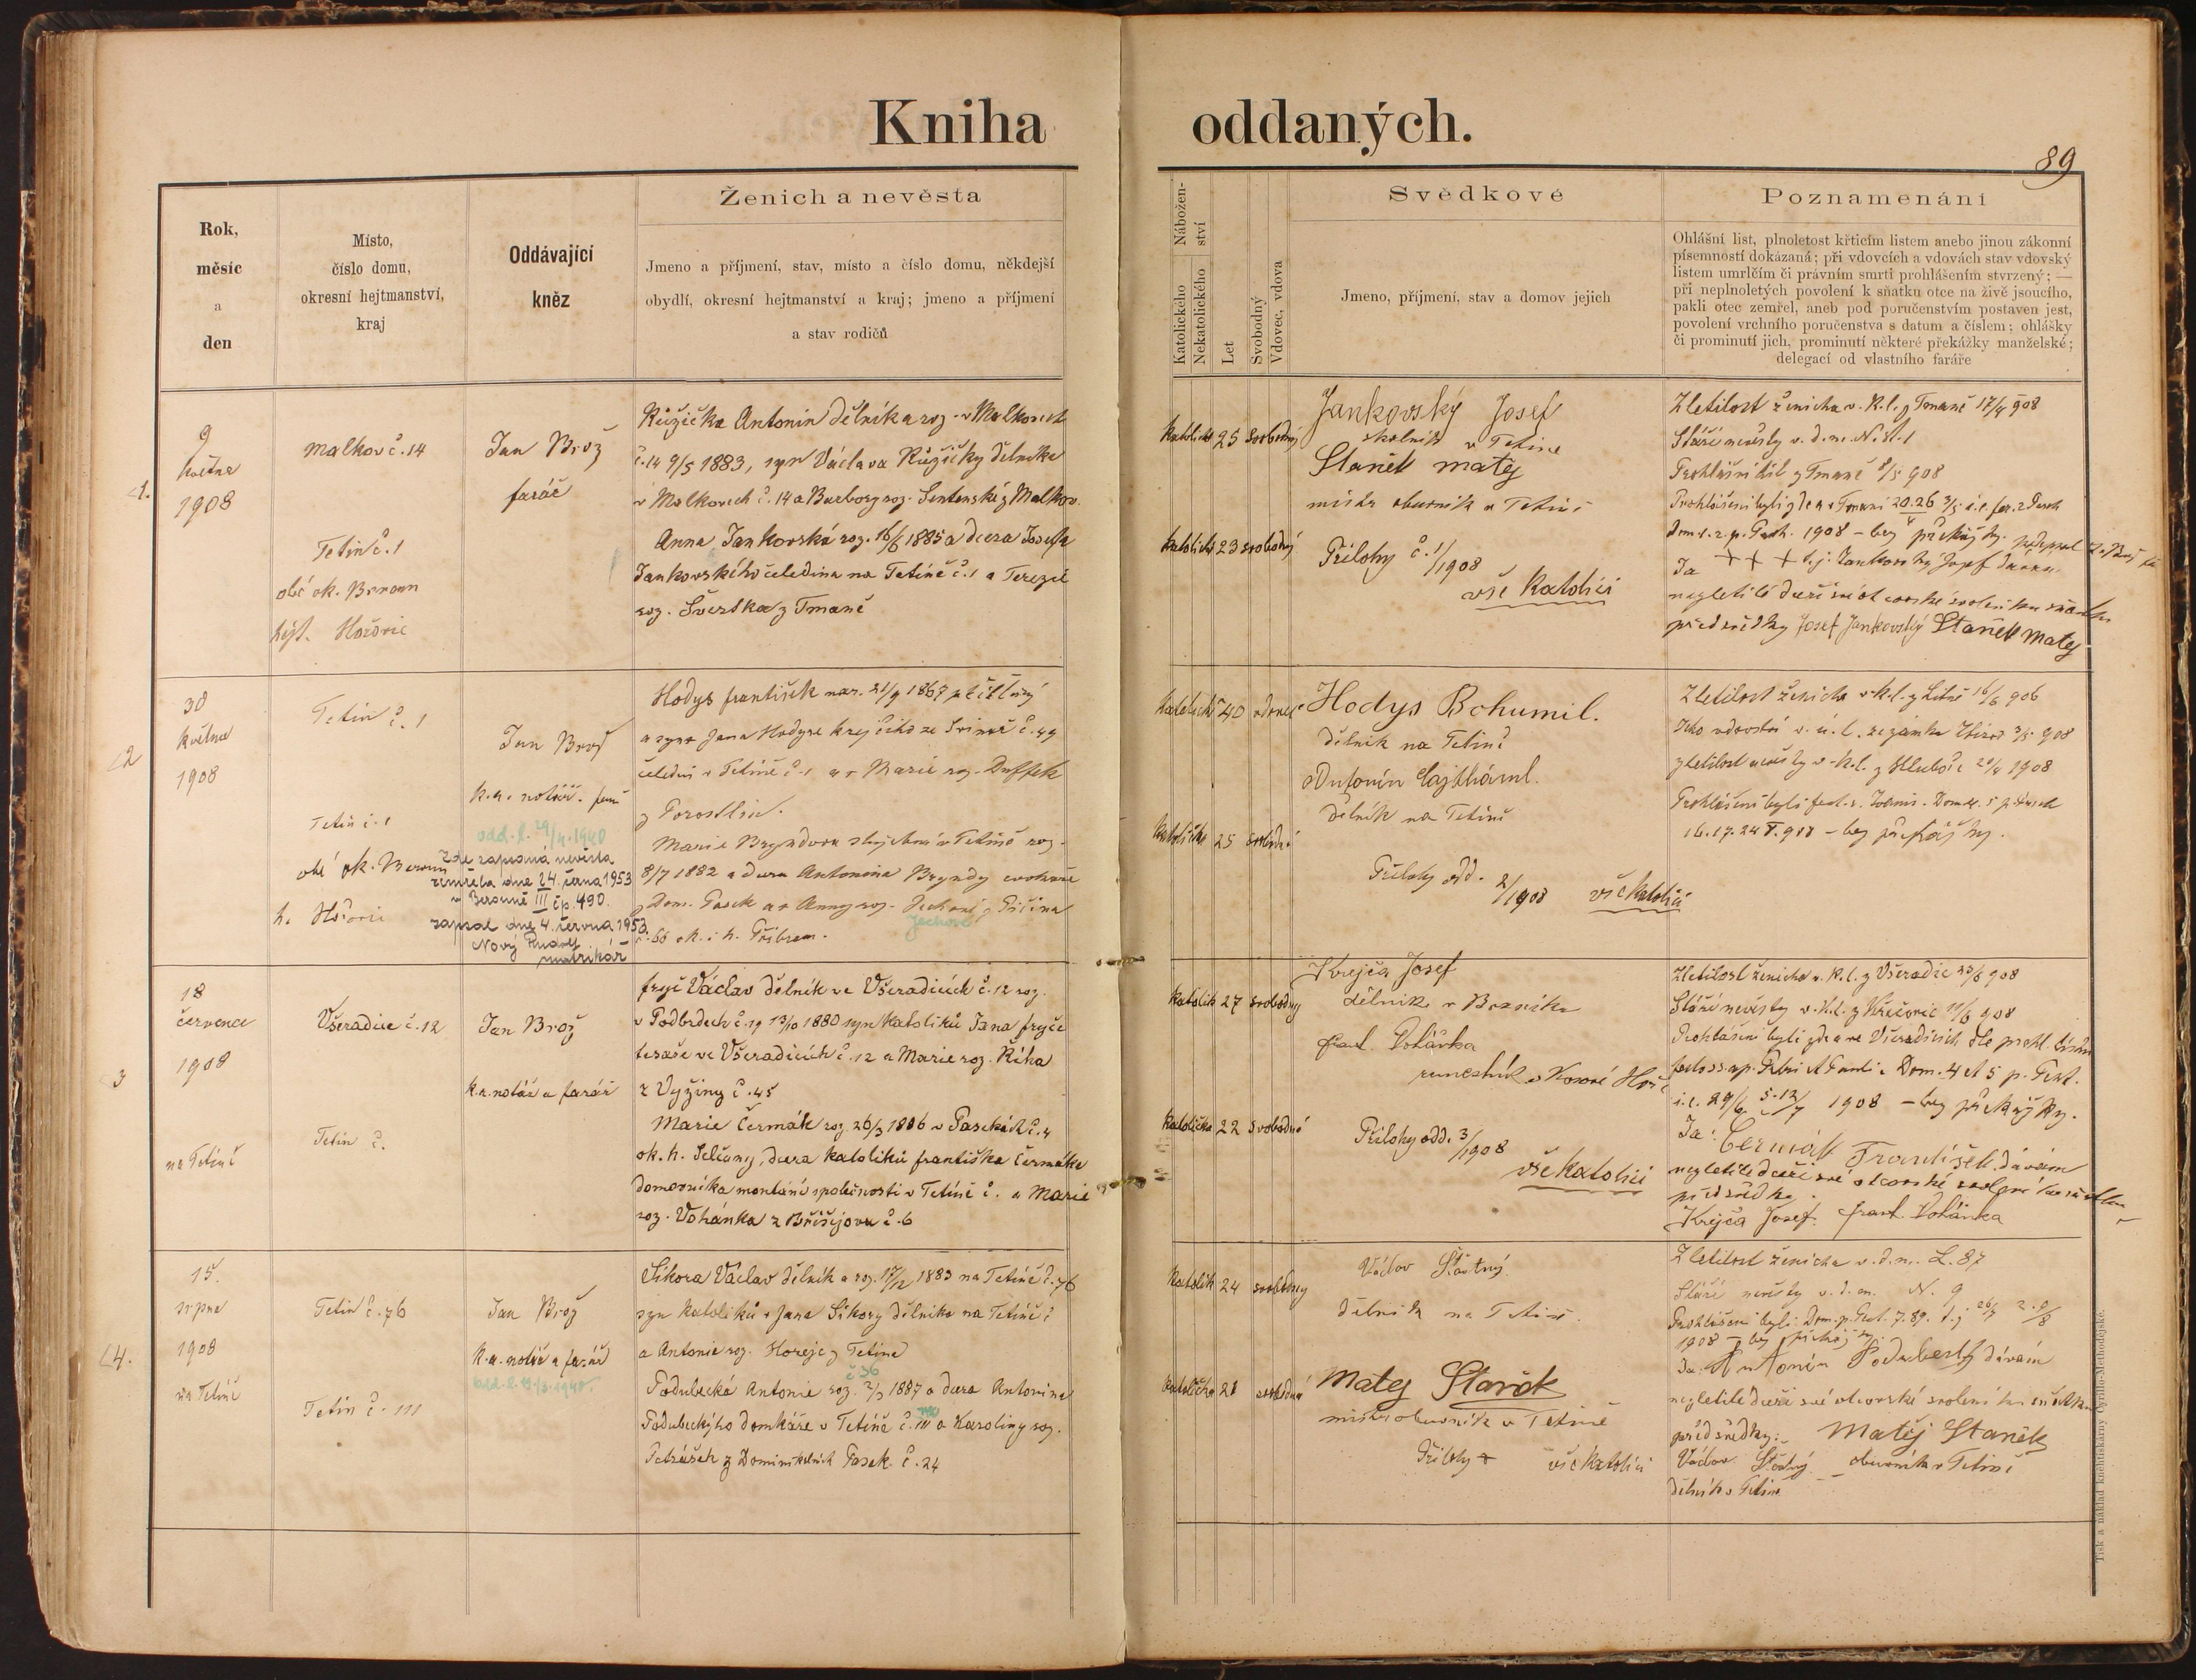 Kniha oddaných.
89
Rok,
měsíc
a
den
Místo,
číslo domu,
okresní hejtmanství,
kraj
Oddávající
kněz
Ženich a nevěsta
Jmeno a příjmení, stav, místo a číslo domu, někdejší
obydlí, okresní hejtmanství a kraj; jmeno a příjmení
a stav rodičů
Nábožen-
ství
Katolického
Nekatolického
Let
Svobodný
Vdovec, vdova
Svědkové
Jmeno, příjmení, stav a domov jejich
Poznamenání
Ohlášní list, plnoletost křticím listem anebo jinou zákonní
písemností dokázaná; při vdovcích a vdovách stav vdovský
listem umrlčím či právním smrti prohlášením stvrzený; —
při neplnoletých povolení k sňatku otce na živě jsoucího,
pakli otec zemřel, aneb pod poručenstvím postaven jest,
povolení vrchního poručenstva s datum a číslem; ohlášky
či prominutí jich, prominutí některé překážky manželské;
delegací od vlastního faráře
1.
9
května
1908
Malkov č. 14
Tetín č. 1
ok. Beroun
hejt. Hořovic
Jan Brož
farář
Růžička Antonín dělník a roz. v Malkovech
č. 14 9/5 1883, syn Václava Růžičky dělníka
v Malkovech č. 14 a Barbory roz. z Malkov.
Anna Jankovská roz. 16/6 1885 a dcera Josefa
Jankovského čeledína na Tetíně č. 1 a Terezie
roz. Švestka z Tmaně
katolick 25 svobodný
katolick 23 svobodný
Jankovský Josef
v Tetíně
Staněk Matěj
mistr obuvník v Tetíně
Přílohy č. 1/1908
vše katolíci
Zletilost ženicha v. k. l. z Tmaně 17/4 908
Stáří nevěsty v. d. m. N. st. 1
Prohlášní list z Tmaně 8/5 908
Prohlášeni byli zde a v Tmani 20. 26 3/5 i. e. fer. 2 Pasch
Dom. 1. 2. p. Pasch. 1908 – bez překážky.
Já + + + tj. Jankovský Josef dávám
nezletilé dceři své otcovské svolení ku sňatku
před svědky Josef Jankovský Staněk Matěj
2
30
května
1908
Tetín č. 1
Tetín č. 1
ok. Beroun
h. Hořovic
Jan Brož
k. a. notář. farář
odd. l. 29/4. 1940
Zde zapsaná nevěsta
zemřela dne 24. 1953
v Berouně III čp 490.
zapsal dne 4. června 1953.
Nový Rudolf
matrikář
Hodys František nar. 21/9 1867
a syn Jana Hodyse krejčího ze Svinař č. 49
čeledín v Tetíně č. 1 a Marie roz. Duffek
z
Marie Bryndova služebná v Tetíně roz.
8/7 1882 a dcera Antonína Bryndy
z Dom. Pasek a Anny roz. z Pičína
Jechové
č. 66 ok. i h. Příbram.
katolick 40 vdovec
katolička 25 svobodná
Hodys Bohumil.
dělník na Tetíně
Antonín Lajtháml.
dělník na Tetíně
Přílohy odd. 2/1908 vše katolíci
Zletilost ženicha v k. l. z Litně 16/6 906
Jeho vdovství v. ú. l. 3/5 908
zletilost nevěsty v k. l. z Hluboše 21/4 1908
Prohlášeni byli
16. 17. 24 V. 908 – bez překážky.
3
18
července
1908
na Tetíně
Všeradice č. 12
Tetín č.
Jan Brož
k. a. notář a farář
Fryč Václav dělník ve Všeradicích č. 12 roz.
v Podbrdech č. 19 13/10 1880 syn katolíků Jana Fryče
tesaře ve Všeradicích č. 12 a Marie roz. Říha
z Vyžiny č. 45
Marie Čermák roz 26/3 1886 v Pasekách č. 4
ok. h. Selčany, dcera katolíků Františka Čermáka
domovníka montání společnosti v Tetíně č. a Marie
roz. Vohánka z Břišejova č. 6
katolík 27 svobodný
katolička 22 svobodná
Krejča Josef
dělník v
Frant. Vohánka
Přílohy odd. 3/1908
vše katolíci
Zletilost ženicha v. k. l. z Všeradic 23/6 908
Stáří nevěsty v. k. l. z Křečovic 11/6 908
Prohlášeni byli zde a ve Všeradicích dle prohl. listu
festo ss. ap. Petri et Pauli a Dom. 4 et 5 p. Pent.
i. e. 29/6 5. 12/7 1908 – bez překážky.
Já: Čermák František dávám
nezletilé dceři své otcovské svolení ku sňatku
před svědky.
Krejča Josef. Frant. Vohánka
4.
15.
srpna
1908
na Tetíně
Tetín č. 76
Tetín č. 111
Jan Brož
k. a. notář a farář
Síkora Václav dělník a roz. 17/12 1883 na Tetíně č. 76
syn katolíků Jana Síkory dělníka na Tetíně č
a Antonie roz. Horejc z Tetína
č 36
Podubecká Antonie roz. 2/3 1887 a dcera Antonína
Podubeckýho domkáře v Tetíně č. 111 a Karoliny roz.
Petrášek z Dominikálních Pasek č. 24
katolík 24 svobodný
katolička 21 svobodná
Václav Šťastný.
dělník na Tetíně.
Matěj Staněk
mistr obuvník v Tetíně
Přílohy vše katolíci
Zletilost ženicha v. d. m. L. 87
Stáří nevěsty v. d. m. N. 9
Prohlášeni byli Dom. p. Pent. 7. 8. 9. t. j. 26/7 2. 9/8
1908 – bez překážky.
Já: Antonín Podubecký dávám
nezletilé dceři své otcovské svolení ku sňatku
před svědky: Matěj Staněk
Václav Šťastný obuvník v Tetíně
dělník v Tetíně
Tisk a náklad knihtiskárny Cyrillo-Methodějské.